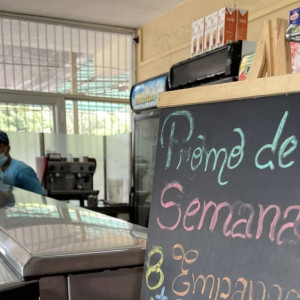 Promo de
Semana
8 Empanadas